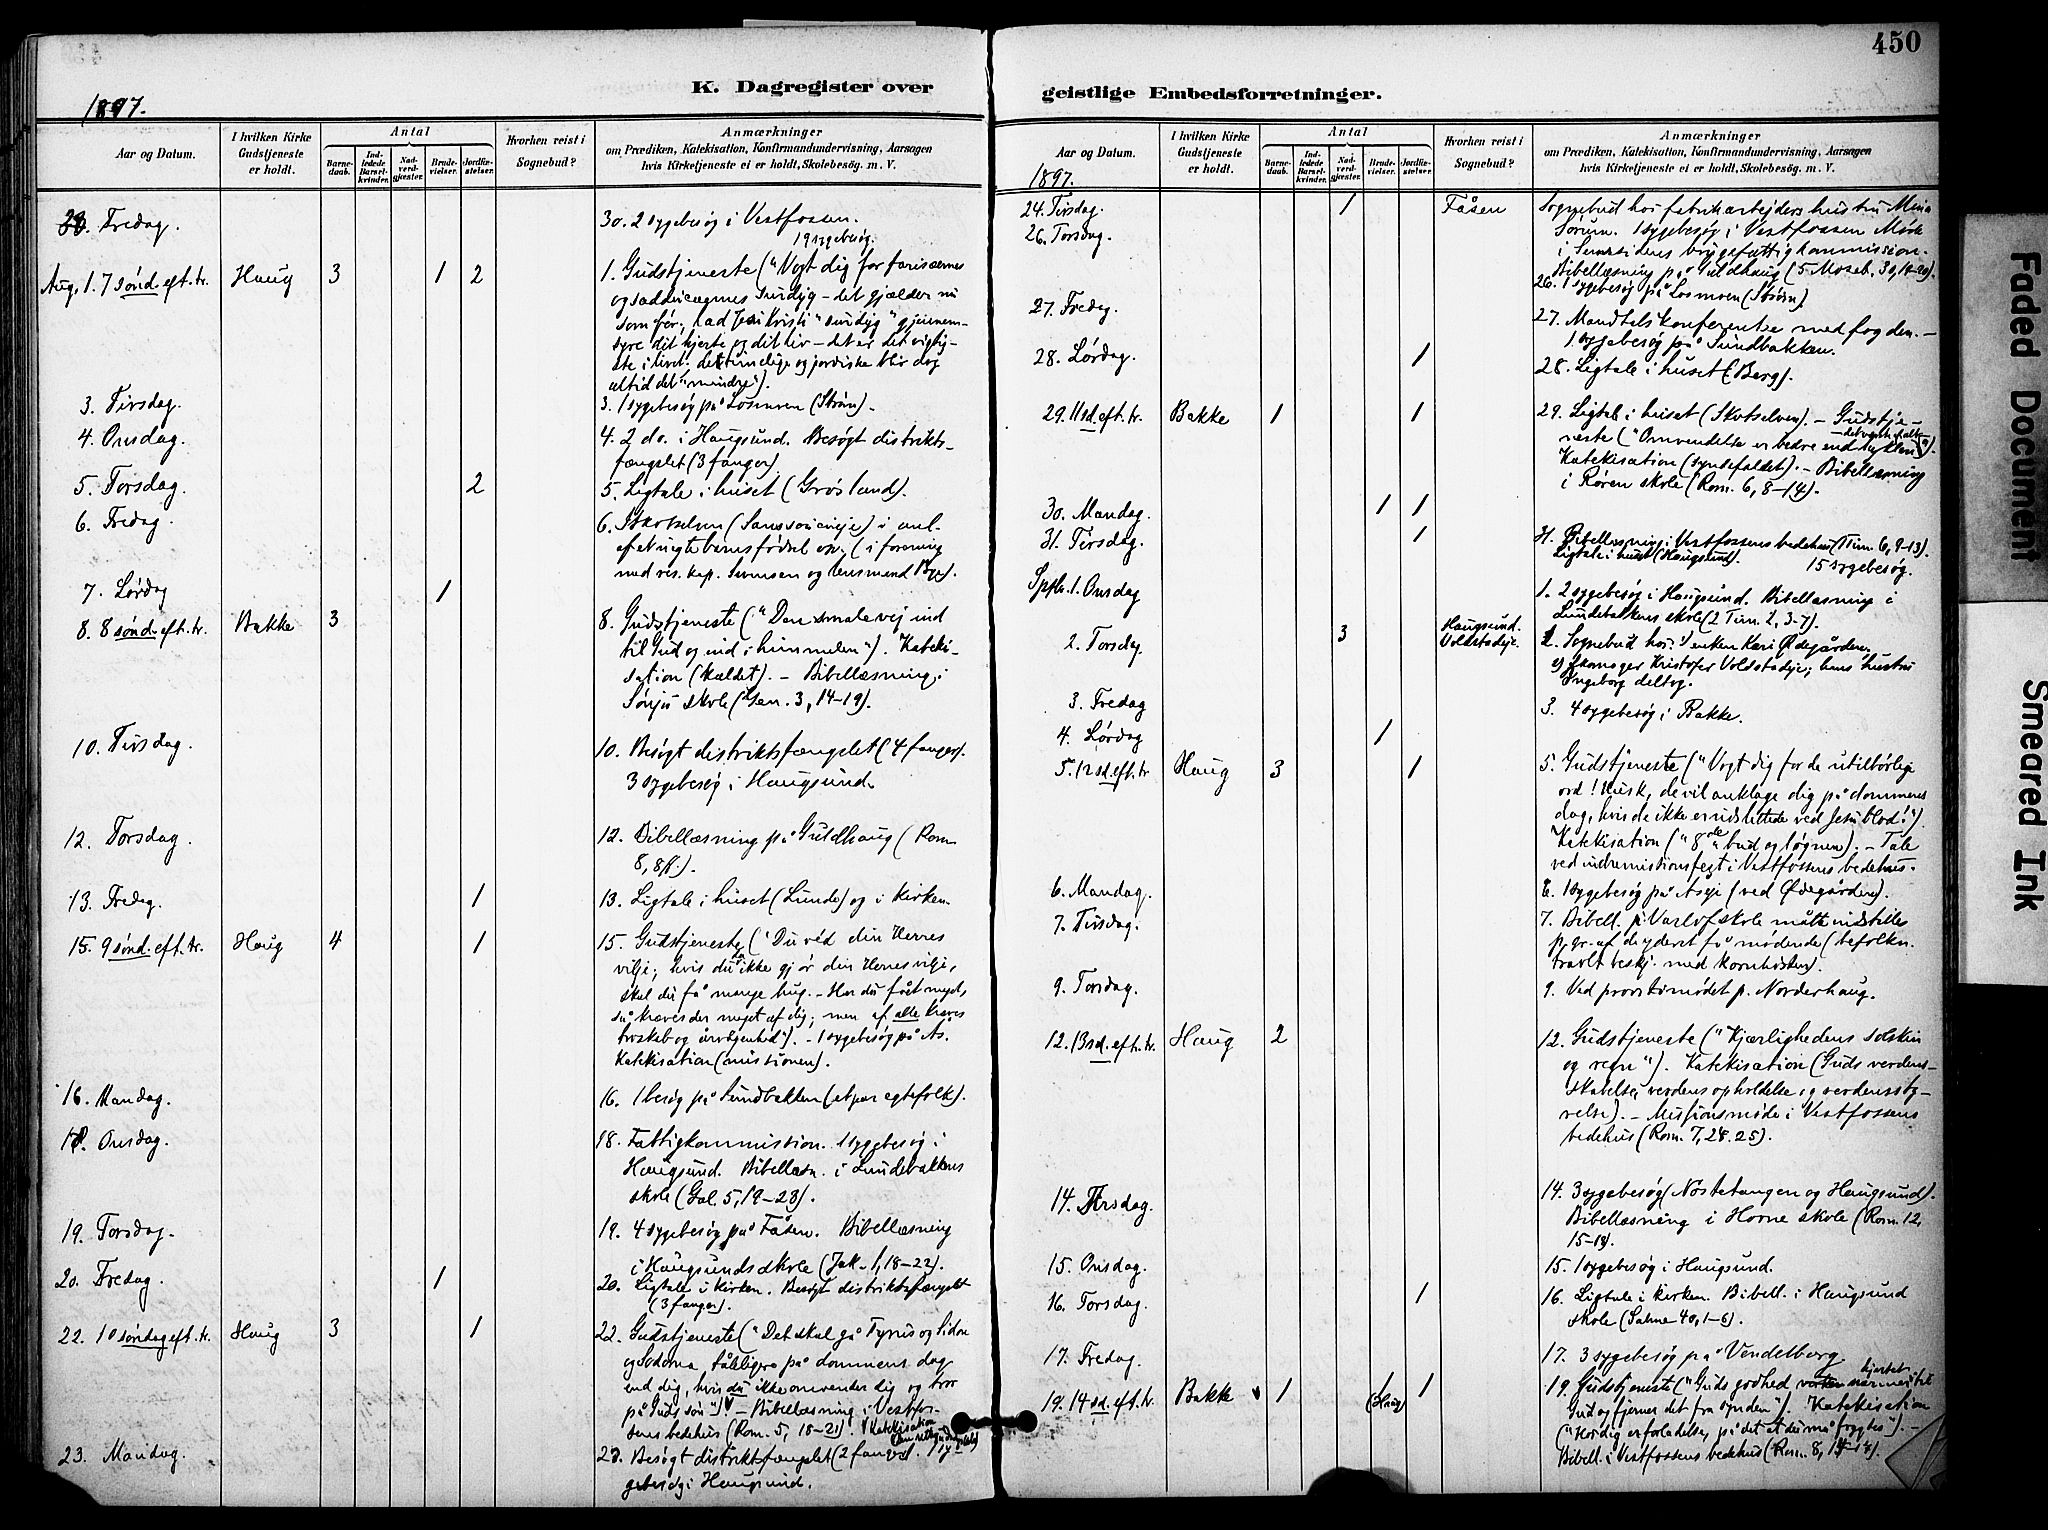 450
K. Dagregister over
geistlige Embedsforretninger.
1897.
Aar og Datum.
I hvilken Kirke Gudstjeneste er holdt.
Antal
Barnedaab.
Indledede Barselkvinder.
Nadverdgjæster.
Brudevielser.
Jordfæstelser.
Hvorhen reist i Sognebud?
Anmærkninger
om Prædiken, Katekisation, Konfirmandundervisning, Aarsagen
hvis Kirketjeneste ei er holdt, Skolebesøg. m. V.
30. Fredag.
30. 2 sygebesøg i Vestfossen.
1 sygebesøg.
Aug. 1. 7 sønd. eft. tr. Haug 3 1 2
1. Gudstjeneste ("Vogt dig for farisæernes
og sadducæernes surdejg – det gjælder nu
som før; lad Jesu Kristi "surdejg" gjennem-
syre dit hjerte og dit liv – det er det vigtig-
ste i livet; det timelige og jordiske blir dog
altid det "mindre").
3. Tirsdag.
3. 1 sygebesøg på Losmoen (Strøm).
4. Onsdag.
4. 2 do. i Haugsund. Besøgt distrikts-
fængslet (3 fanger).
5. Torsdag. 2
5. Ligtale i huset (Grøsland).
6. Fredag.
6. I Skotselven (Sanssouciveje) i anl.
af et uægte barns fødsel osv. (i forening
med res. kap. Svensen og lensmand Bye).
7. Lørdag 1
8. 8 sønd. eft. tr. Bakke 3
8. Gudstjeneste ("Den smale vej ind
til Gud og ind i himmelen"). Kateki-
sation (kaldet). – Bibellæsning i
skole (Gen. 3, 14–19).
10. Tirsdag.
10. Besøgt distriktsfængslet (4 fanger).
3 sygebesøg i Haugsund.
12. Torsdag.
12. Bibellæsning på Guldhaug (Rom.
8, 8ff.).
13. Fredag. 1
13. Ligtale i huset (Lunde) og i kirken.
15. 9 sønd. eft. tr. Haug 4 1
15. Gudstjeneste ("Du véd din Herres
vilje; hvis du da ikke gjør din Herres vilje,
skal du få mange hug. – Har du fået meget,
så kræves der meget af dig; men af alle kræves
troskab og årvågenhed"). – 1 sygebesøg på Ås.
Katekisation (missionen).
16. Mandag.
16. 1 besøg på Sundbakken (et par egtefolk).
18. Onsdag.
18. Fattigkommission. 1 sygebesøg i
Haugsund. Bibellæsn. i Lundebakkens
skole (Gal. 5, 19–23).
19. Torsdag.
19. 4 sygebesøg på Fåsen. Bibellæsning
i Haugsunds skole (Jak. 1, 18–22).
20. Fredag. 1
20. Ligtale i kirken. Besøgt distriktsfængslet
(3 fanger).
22. 10 søndag eft. tr. Haug 3 1
22. Gudstjeneste ("Det skal gå Tyrus og Sidon
og Sodoma tåleligere på dommens dag
end dig, hvis du ikke omvender dig og tror
på Guds søn"). – Bibellæsning i Vestfos-
sens bedehus (Rom. 5, 18–21). Katekisation
23. Mandag.
23. Besøgt distriktsfængslet (2 fanger). 1 sy-
gebesøg i Haugsund.
Aar og Datum.
I hvilken Kirke Gudstjeneste er holdt.
Antal
Barnedaab.
Indledede Barselkvinder.
Nadverdgjæster.
Brudevielser.
Jordfæstelser.
Hvorhen reist i Sognebud?
Anmærkninger
om Prædiken, Katekisation, Konfirmandundervisning, Aarsagen
hvis Kirketjeneste ei er holdt, Skolebesøg. m. V.
1897.
24. Tirsdag. 1 Fåsen
Sognebud hos fabrikarbejders hustru Mina
Sørum. 1 sygebesøg i Vestfossen. Møde
i Semsidens bygdefattigkommission.
26. Torsdag.
Bibellæsning på Guldhaug (5 Moseb. 30, 14–20).
26. 1 sygebesøg på Losmoen (Strøm)
27. Fredag.
27. Mandtalskonferentse med fogden. –
1 sygebesøg på Sundbakken.
28. Lørdag. 1
28. Ligtale i huset (Berg).
29. 11 sd. eft. tr. Bakke 1 1
29. Ligtale i huset (Skotselven). – Gudstje-
neste ("Omvendelse er bedre end
Katekisation (syndefaldet). – Bibellæsning
i Røren skole (Rom. 6, 8–14).
30. Mandag. 1 1
31. Tirsdag. 1
31. Bibellæsning i Vestfossens bedehus (1 Tim. 6, 9–13).
Ligtale i huset (Haugsund).
15 sygebesøg.
Sptbr. 1. Onsdag
1. 2 sygebesøg i Haugsund. Bibellæsning i
Lundebakkens skole (2 Tim. 2, 3–7).
2. Torsdag. 3 Haugsund. Voldstadeje.
2. Sognebud hos: 1) enken Kari Ødegården
2) skomager Kristofer Voldstadeje; hans hustru
Ingeborg deltog.
3. Fredag
3. 4 sygebesøg i Bakke.
4. Lørdag 1
5. 12 sd. eft. tr. Haug 3 1
5. Gudstjeneste ("Vogt dig for de utilbørlige
ord! Husk, de vil anklage dig på dommens
dag, hvis de ikke er udslettede ved Jesu blod!").
Katekisation ("8de" bud og løgnen). – Tale
ved indremissionsfest i Vestfossens bedehus.
6. Mandag.
6. 1 sygebesøg på Åseje (ved Ødegården).
7. Tirsdag.
7. Bibell. på Varlo skole måtte indstilles
p. gr. af de yderst få mødende (befolkn.
travlt beskj. med kornhøsten).
9. Torsdag.
9. Ved provstimødet p. Norderhaug.
12. 13 sd. eft. tr. Haug 2
12. Gudstjeneste ("Kjærlighedens solskin
og regn"). Katekisation (Guds verdens-
skabelse, verdens opholdelse og verdenssty-
relse). – Missionsmøde i Vestfossens
bedehus (Rom. 7, 24. 25).
14. Tirsdag.
14. 3 sygebesøg (Nøstetangen og Haugsund).
Bibellæsning i Horne skole (Rom. 12,
15–18).
15. Onsdag.
15. 1 sygebesøg i Haugsund.
16. Torsdag. 1
16. Ligtale i kirken. Bibell. i Haugsund
skole (Salme 40, 1–6).
17. Fredag.
17. 3 sygebesøg på Vendelborg
19. 14 sd. eft. tr. Bakke 1 1 (Haug) 1
19. Gudstjeneste ("Guds godhed hjertet nærmere til
Gud og fjerner det fra synden"). Katekisation
("Hos dig er forladelse, på det at du må frygtes"). –
Bibell. i Vestfossens bedehus (Rom. 8, 14–18).
Faded Document
Smeared Ink